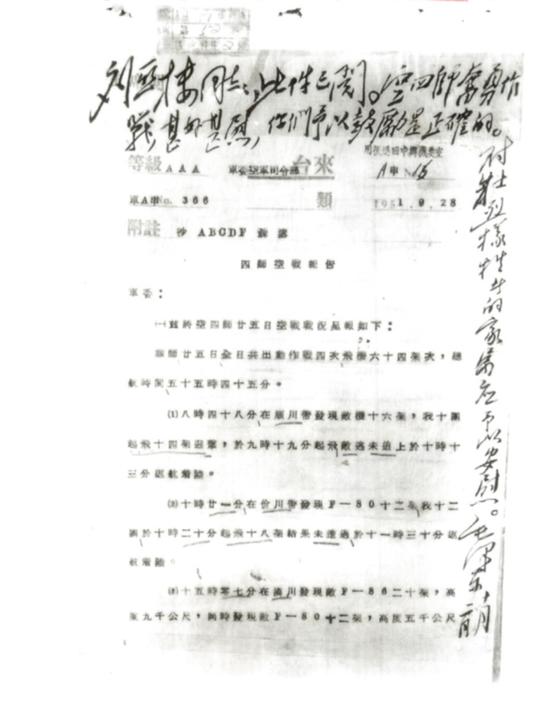 刘亞楼同志：此件已閱。空四師奮勇作
戰，甚好甚慰，你們予以鼓勵是正確的。
对壯烈犧牲者的家屬应予以安慰。毛澤東 十月二日
等級 AAA 軍委空軍司令部 台來
A申 16
軍A申No. 366 類 1951.9.28
附註 沙 ABCDF
四師空戰報告
軍委：
㈠茲將空四師廿五日空戰戰況呈報如下：
該師廿五日全日共出動作戰四次飛機六十四架次，總
航時間五十五時四十五分。
⑴八時四十八分在順川帶發現敵機十六架，我十團
起飛十四架迎擊，於九時十九分起飛敵逃未追上於十時十
三分返航着陸。
⑵十時廿一分在价川帶發現F—80十二架我十二
團於十時二十分起飛十八架結果未遭遇於十一時三十分返
航着陸。
⑶十五時零七分在順川發現敵F—86二十架，高
度九千公尺，同時發現敵F—80十二架，高度五千公尺